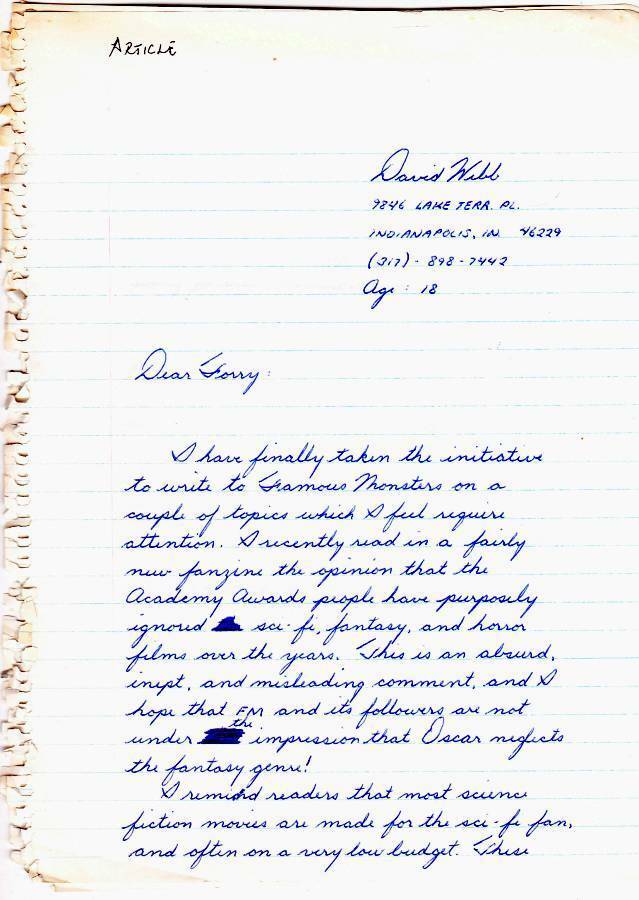 ARTICLE
David Webb
9846 LAKE TERR. PL.
INDIANAPOLIS, IN 46229
(317)-898-7442
Age: 18
Dear Forry:
I have finally taken the initiative
to write to Famous Monsters on a
couple of topics which I feel require
attention. I recently read in a fairly
new fanzine the opinion that the
Academy Awards people have purposely
ignored sci-fi, fantasy, and horror
films over the years. This is an absurd,
inept, and misleading comment, and I
hope that FM and its followers are not
under the impression that Oscar neglects
the fantasy genre!
I remind readers that most science
fiction movies are made for the sci-fi fan,
and often on a very low budget. These